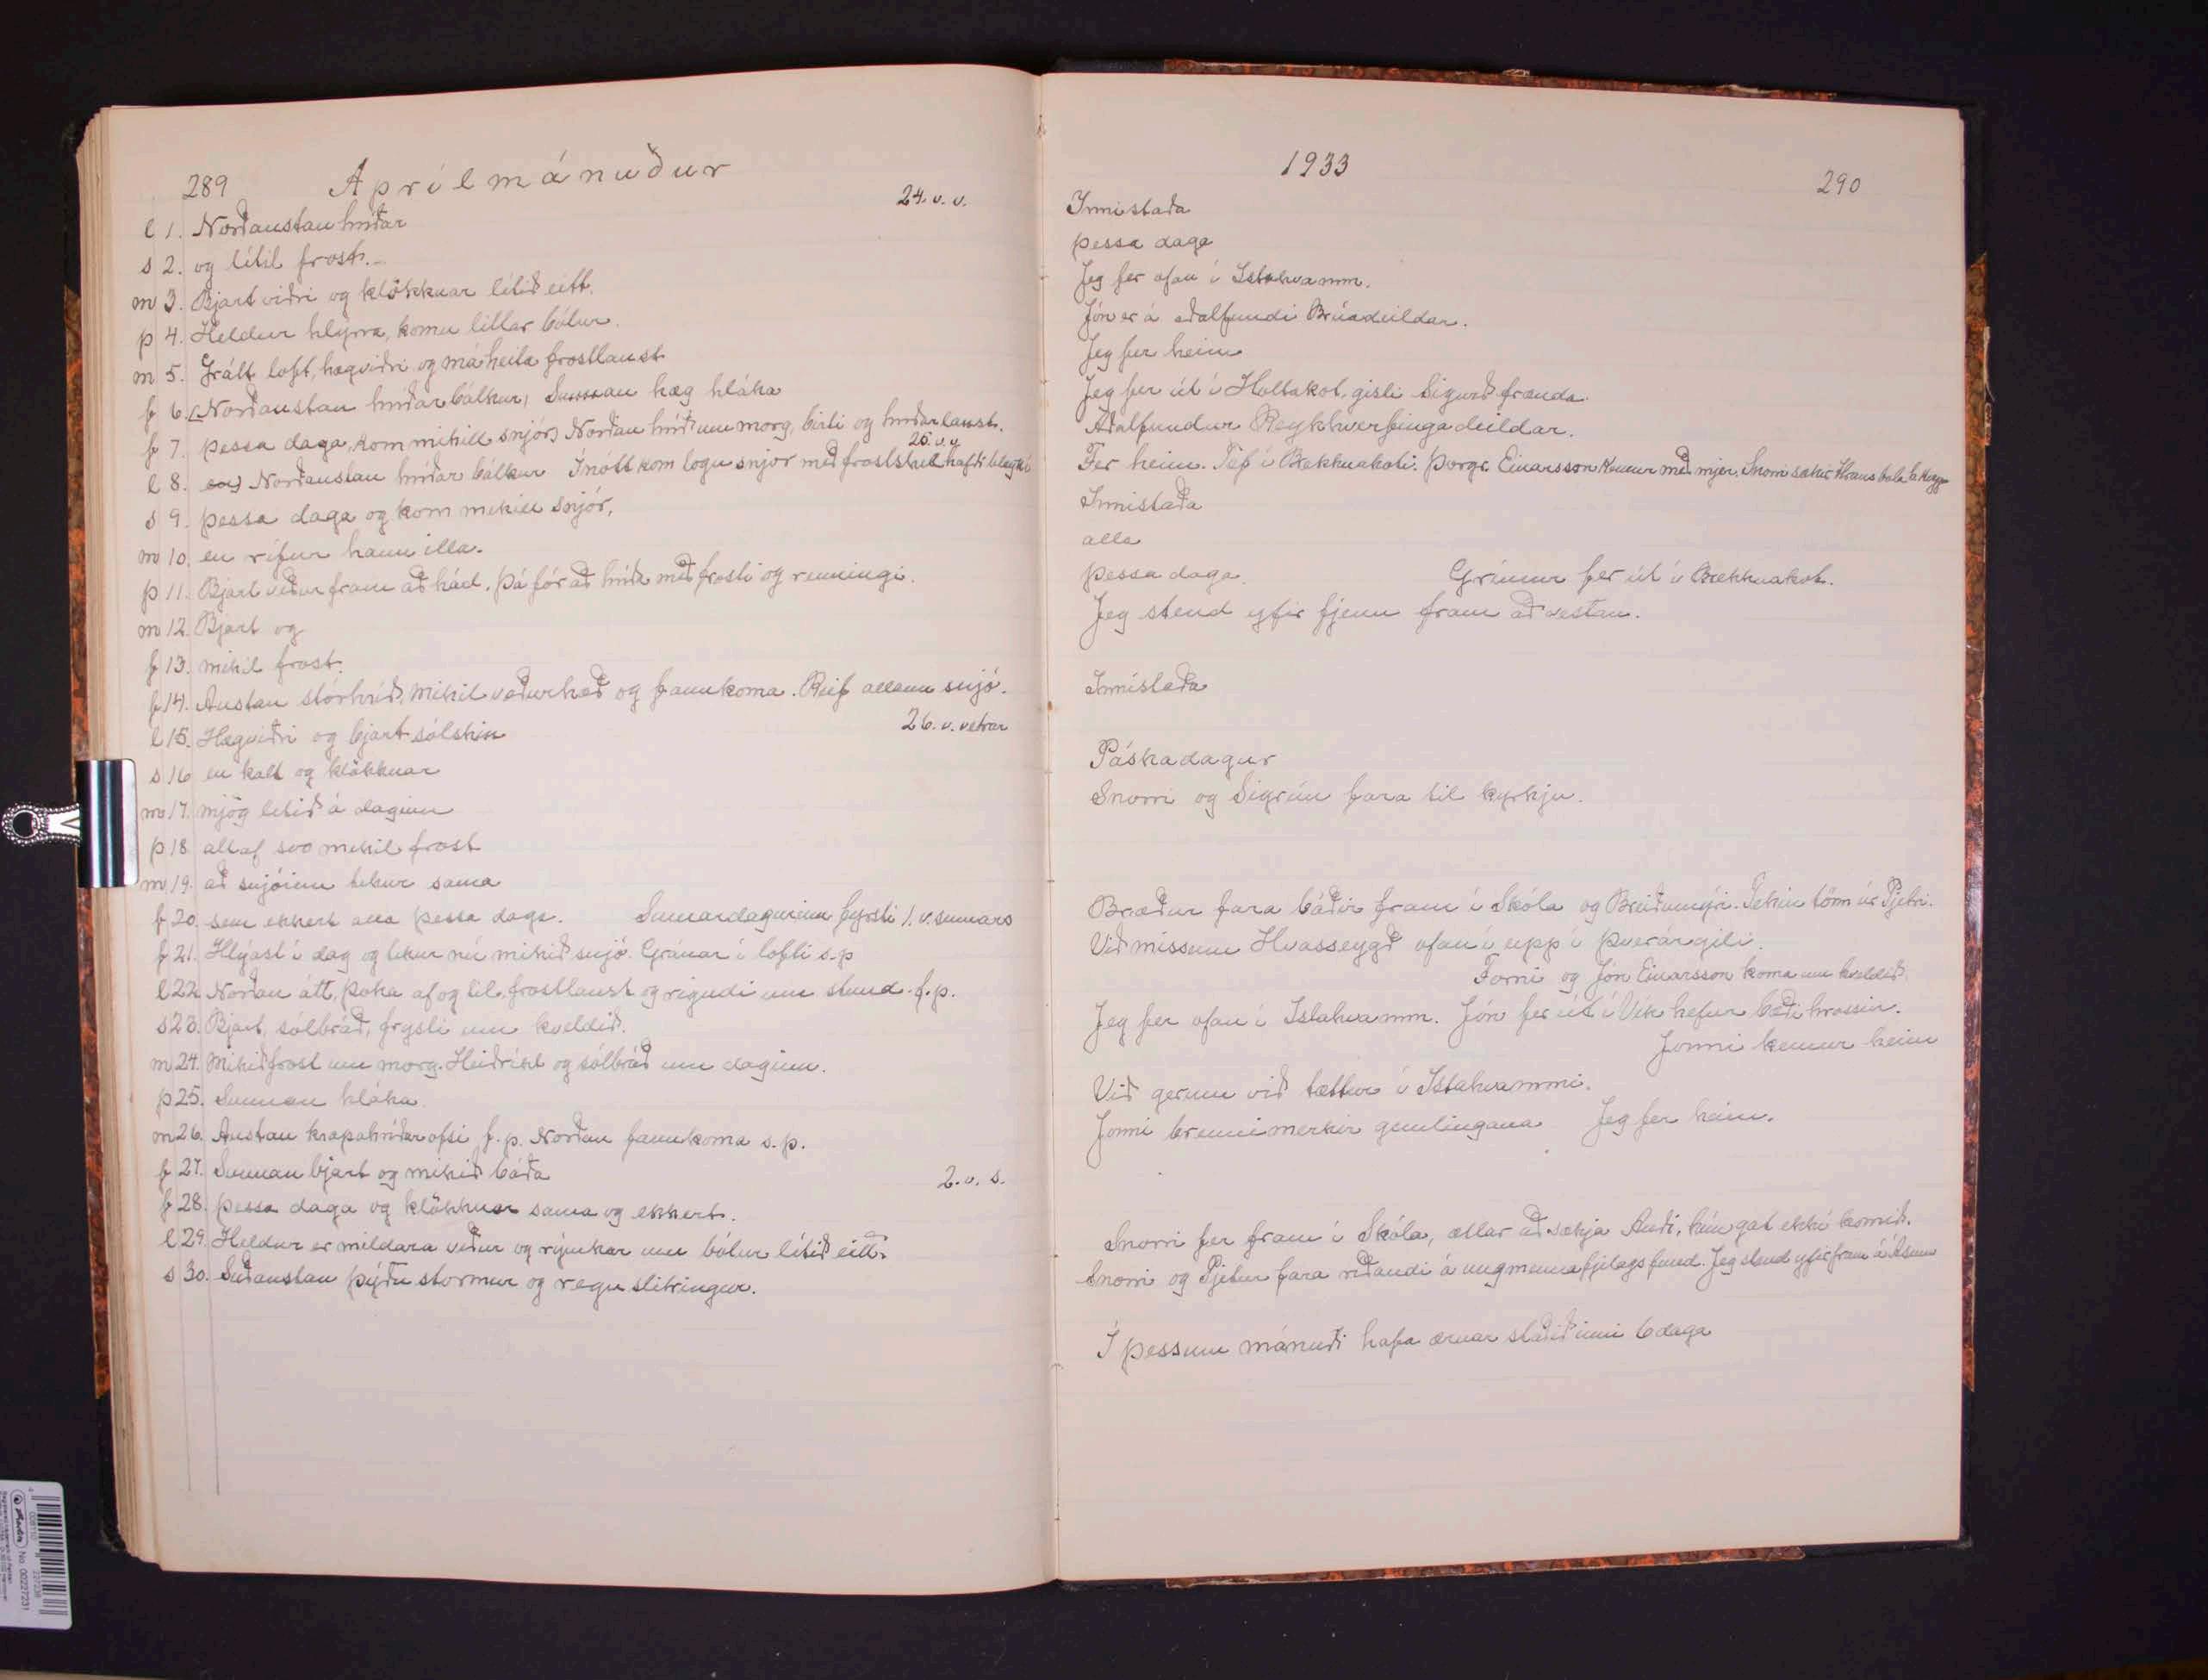 289 Aprílmánuður
24. v. v.
l 1. Norðaustan hríðar
s 2. og lítil frost.
m 3. Bjart viðri og klökknar lítið eitt.
þ 4. Heldur hlýrra, komu litlar bólur.
m 5. Grátt loft, hægviðri og má heita frostlaust
f 6. Norðaustan hríðar bálkur, Sunnan hæg hláka
f 7. þessa daga, kom mikill snjór, Norðan hríð um morg, birti og hríðarlaust.
25. v. v
l 8. Norðaustan hríðar bálkur Í nótt kom logn snjór með frosti hafði bleytt í
s 9. þessa daga og kom mikill snjór,
m 10. en rífur hann illa.
þ 11. Bjart veður fram að hád. þá fór að hríða með frosti og renningi.
m 12. Bjart og
f 13. mikil frost.
f 14. Austan stórhríð, mikil veðurhæð og fannkoma. Reif allann snjó.
26. v. vetrar
l 15. Hægviðri og bjart sólskin
s 16 en kalt og klökknar
m 17. mjög lítið á daginn
þ 18 altaf svo mikil frost
m 19. að snjóinn tekur sama
f 20. sem ekkert alla þessa daga. Sumardagurinn fyrsti 1. v. sumars
f 21. Hlýast í dag og tekur nú mikið snjó. Gránar í lofti s-p
l 22 Norðan átt, þoka af og til. frostlaust og rigndi um stund f. p.
s 23. Bjart, sólbráð, frysti um kveldið.
m 24. Mikið frost um morg. Heiðríkt og sólbráð um daginn.
þ 25. Sunnan hláka
m 26. Austan krapahríðar ofsi f. p. Norðan fannkoma s. p.
f 27. Sunnan bjart og mikið báða
2. v. s.
f 28. þessa daga og klökknar sama og ekkert.
l 29. Heldur er mildara veður og rýmkar um bólur lítið eitt.
s 30. Suðaustan þýðu stormur og regn slitringur.
1933
290
Innistaða
þessa daga
Jeg fer ofan í Istahvamm.
Jón er á aðalfundi Brúadeildar.
Jeg fer heim
Jeg fer út í Holtakot, gisti Sigurð frænda.
Aðalfundur Reykhverfingadeildar.
Fer heim. Tef í Brekknakoti. Þorgr. Einarsson kemur með mjer. Snorri sækir
Innistaða
alla
þessa daga. Grímur fer út í Brekknakot.
Jeg stend yfir fjenu fram að vestan.
Innistaða
Páskadagur
Snorri og Sigrún fara til kyrkju.
Bræður fara báðir fram í Skóla og Breiðumýri. Tekin tönn úr Pjetri.
Við missum Hvasseygð ofan í upp í Þverárgili.
Forni og Jón Einarsson koma um kveldið
Jeg fer ofan í Istahvamm. Jón fer út í Vík hefur bæði hrossin.
Jonni kemur heim
Við gerum við tættur í Istahvammi.
Jonni brennimerkir gemlingana Jeg fer heim.
Snorri fer fram í Skóla, ætlar að sækja Auði, hún gat ekki komið.
Snorri og Pjetur fara ríðandi á ungmennafjelagsfund. Jeg stend yfir fram á Ásum
Í þessum mánuði hafa ærnar staðið inni 6 daga
No. 002272231